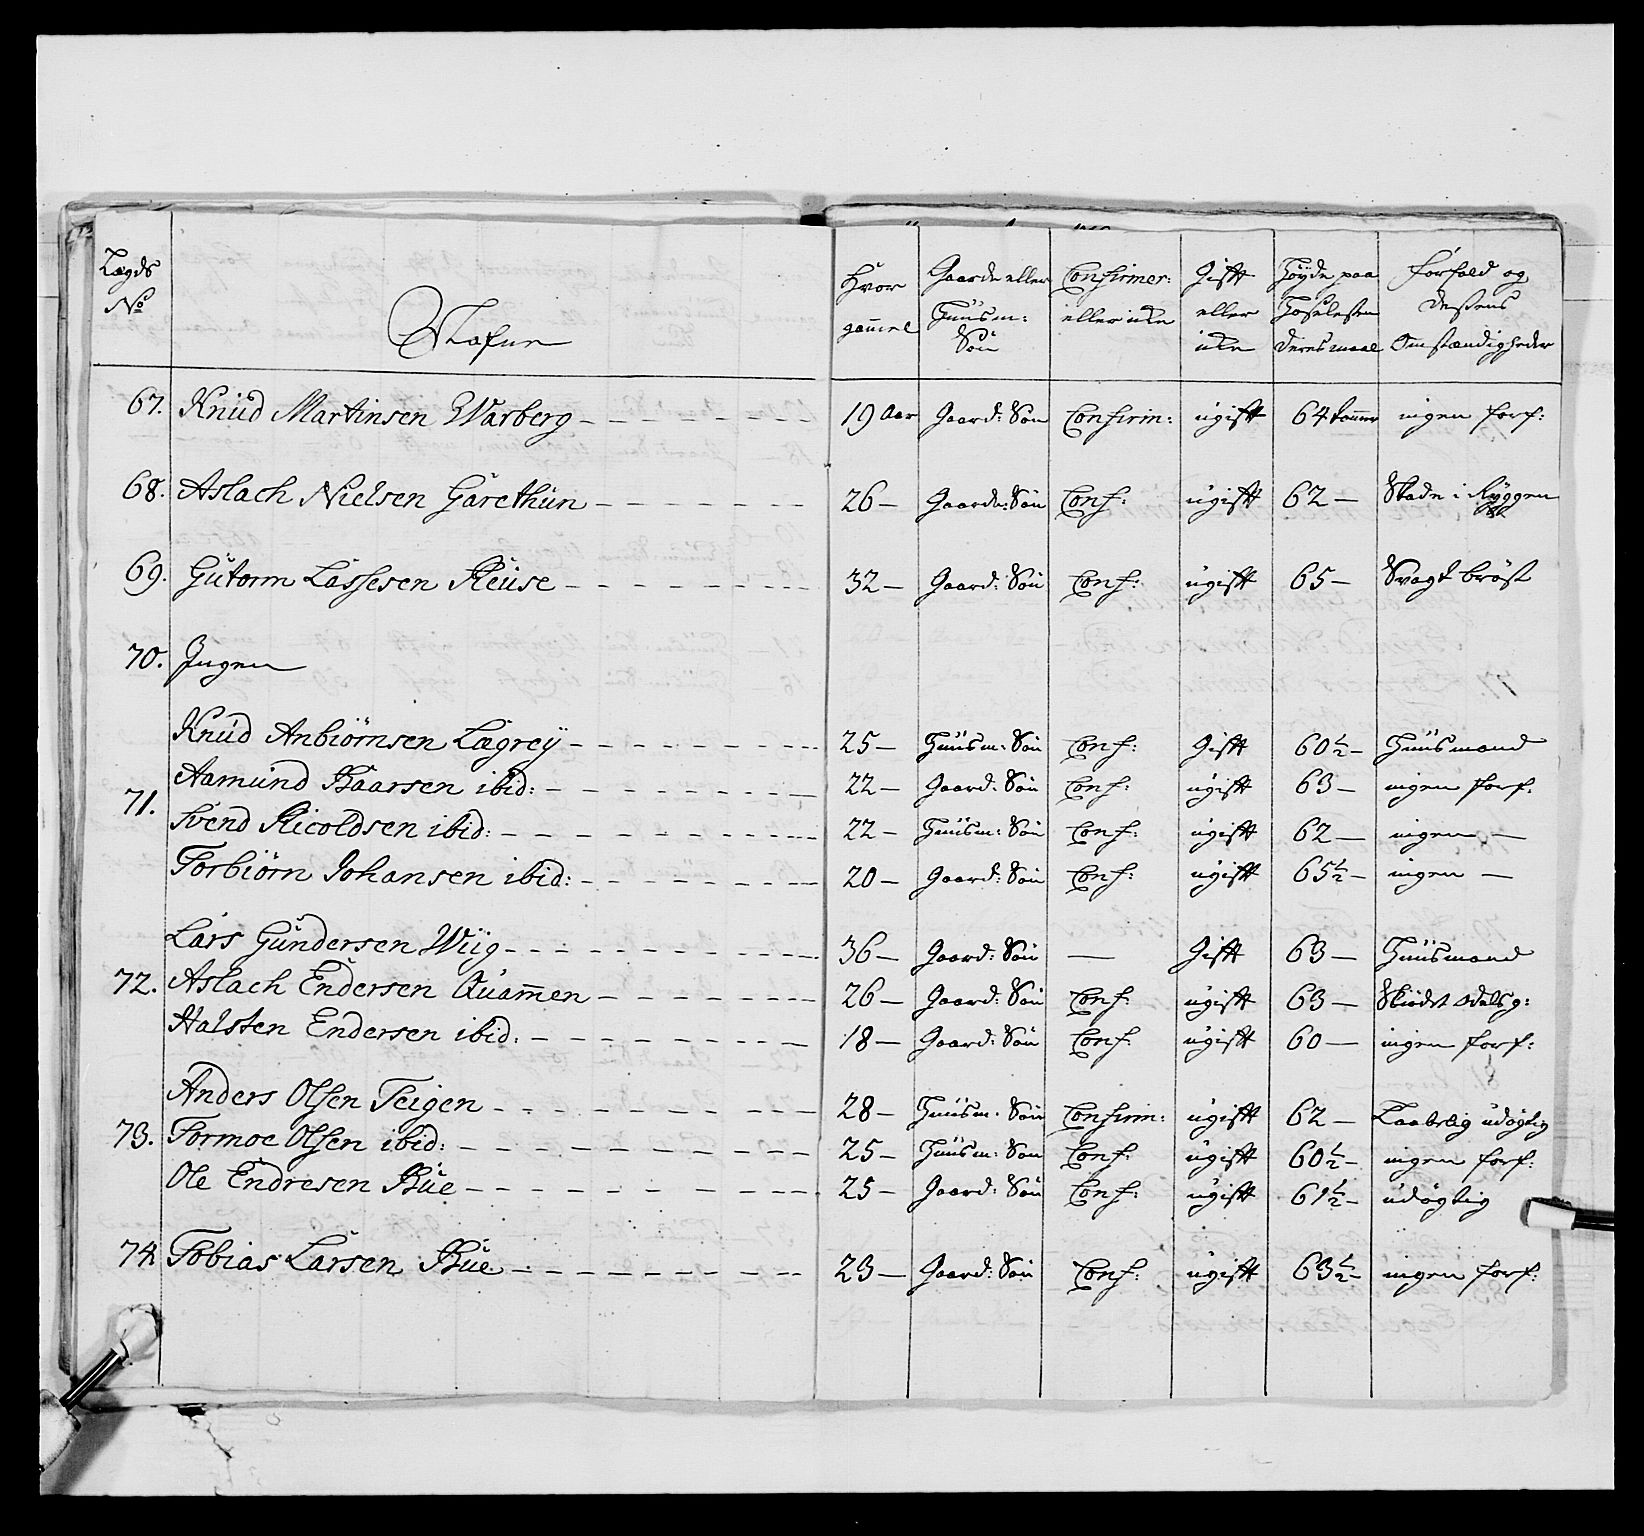 Lægds No
Nafne
Hvor gammel
Gaards eller Huusm: Søn
Confirmer: eller icke
Gift eller icke
Høyde paa Hoselesten deres maal
Forfald og dessens Omstændigheder
67. Knud Martinsen Warberg 19 Aar Gaard: Søn Confirm: ugift 64 tommer ingen forf:
68. Aslach Nielsen Garethun 26 Gaards: Søn Conf: ugift 62 Skade i Ryggen
69. Gutorm Lassesen Reuse 32 Gaard: Søn Conf: ugift 65 Svagt bröst
70. Ingen
Knud Anbiörnsen Lægrey 25 Huusm: Søn Conf: Gift 60½ Huusmand
Aamund Baarsen ibid: 22 Gaard: Søn Conf: ugift 63 ingen forf:
71.
Svend Ricoldsen ibid: 22 Huusm: Søn Conf: ugift 62 ingen —
Torbiörn Johansen ibid: 20 Gaard: Søn Conf: ugift 65½ ingen —
Lars Gundersen Wiig 36 Gaard: Søn — Gift 63 Huusmand
72. Aslach Endersen Quamen 26 Gaard: Søn Conf: ugift 63 Skiödt odelsg:
Halsten Endersen ibid: 18 Gaard: Søn Conf: ugift 60 ingen forf:
Anders Olsen Teigen 28 Huusm: Søn Confirm: ugift 62 udögtig
73. Tormoe Olsen ibid: 25 Huusm: Søn Conf: ugift 60½ ingen forf:
Ole Endresen Bue 25 Gaard: Søn Conf: ugift 61½ udögtig
74. Tobias Larsen Bue 23 Gaard: Søn Conf: ugift 63½ ingen forf: